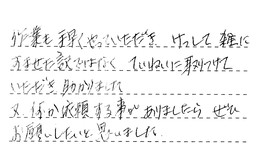 作業も手早くやっていただき けっして 雑に
すませた訳ではなく ていねいに取りつけて
いただき 助かりました
又 何か依頼する事がありましたら ぜひ
お願いしたいと思いました